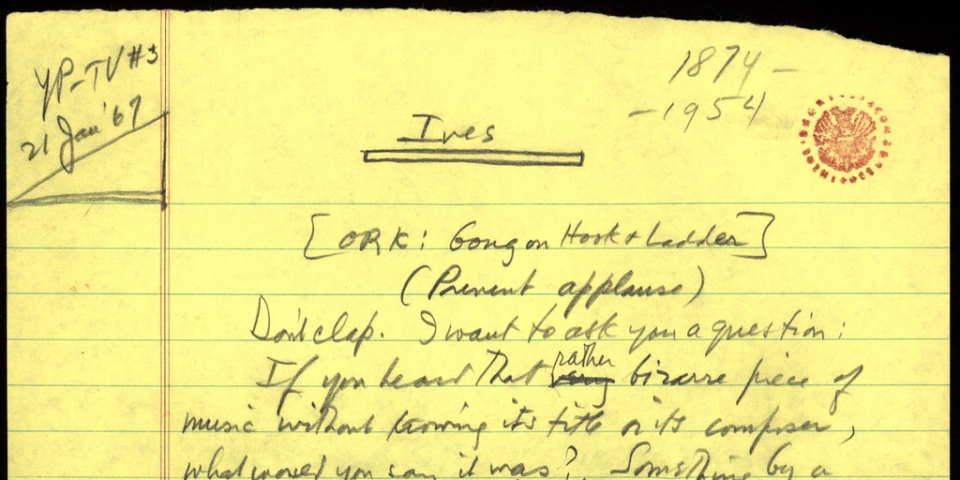 YP-TV #3
21 Jan '67
1874 -
- 1954
Ives
[ORK: Gong on Hook & Ladder]
(Prevent applause)
Don't clap. I want to ask you a question:
If you heard that rather bizarre piece of
music without knowing its title or its composer,
what would you say it was? Something by a